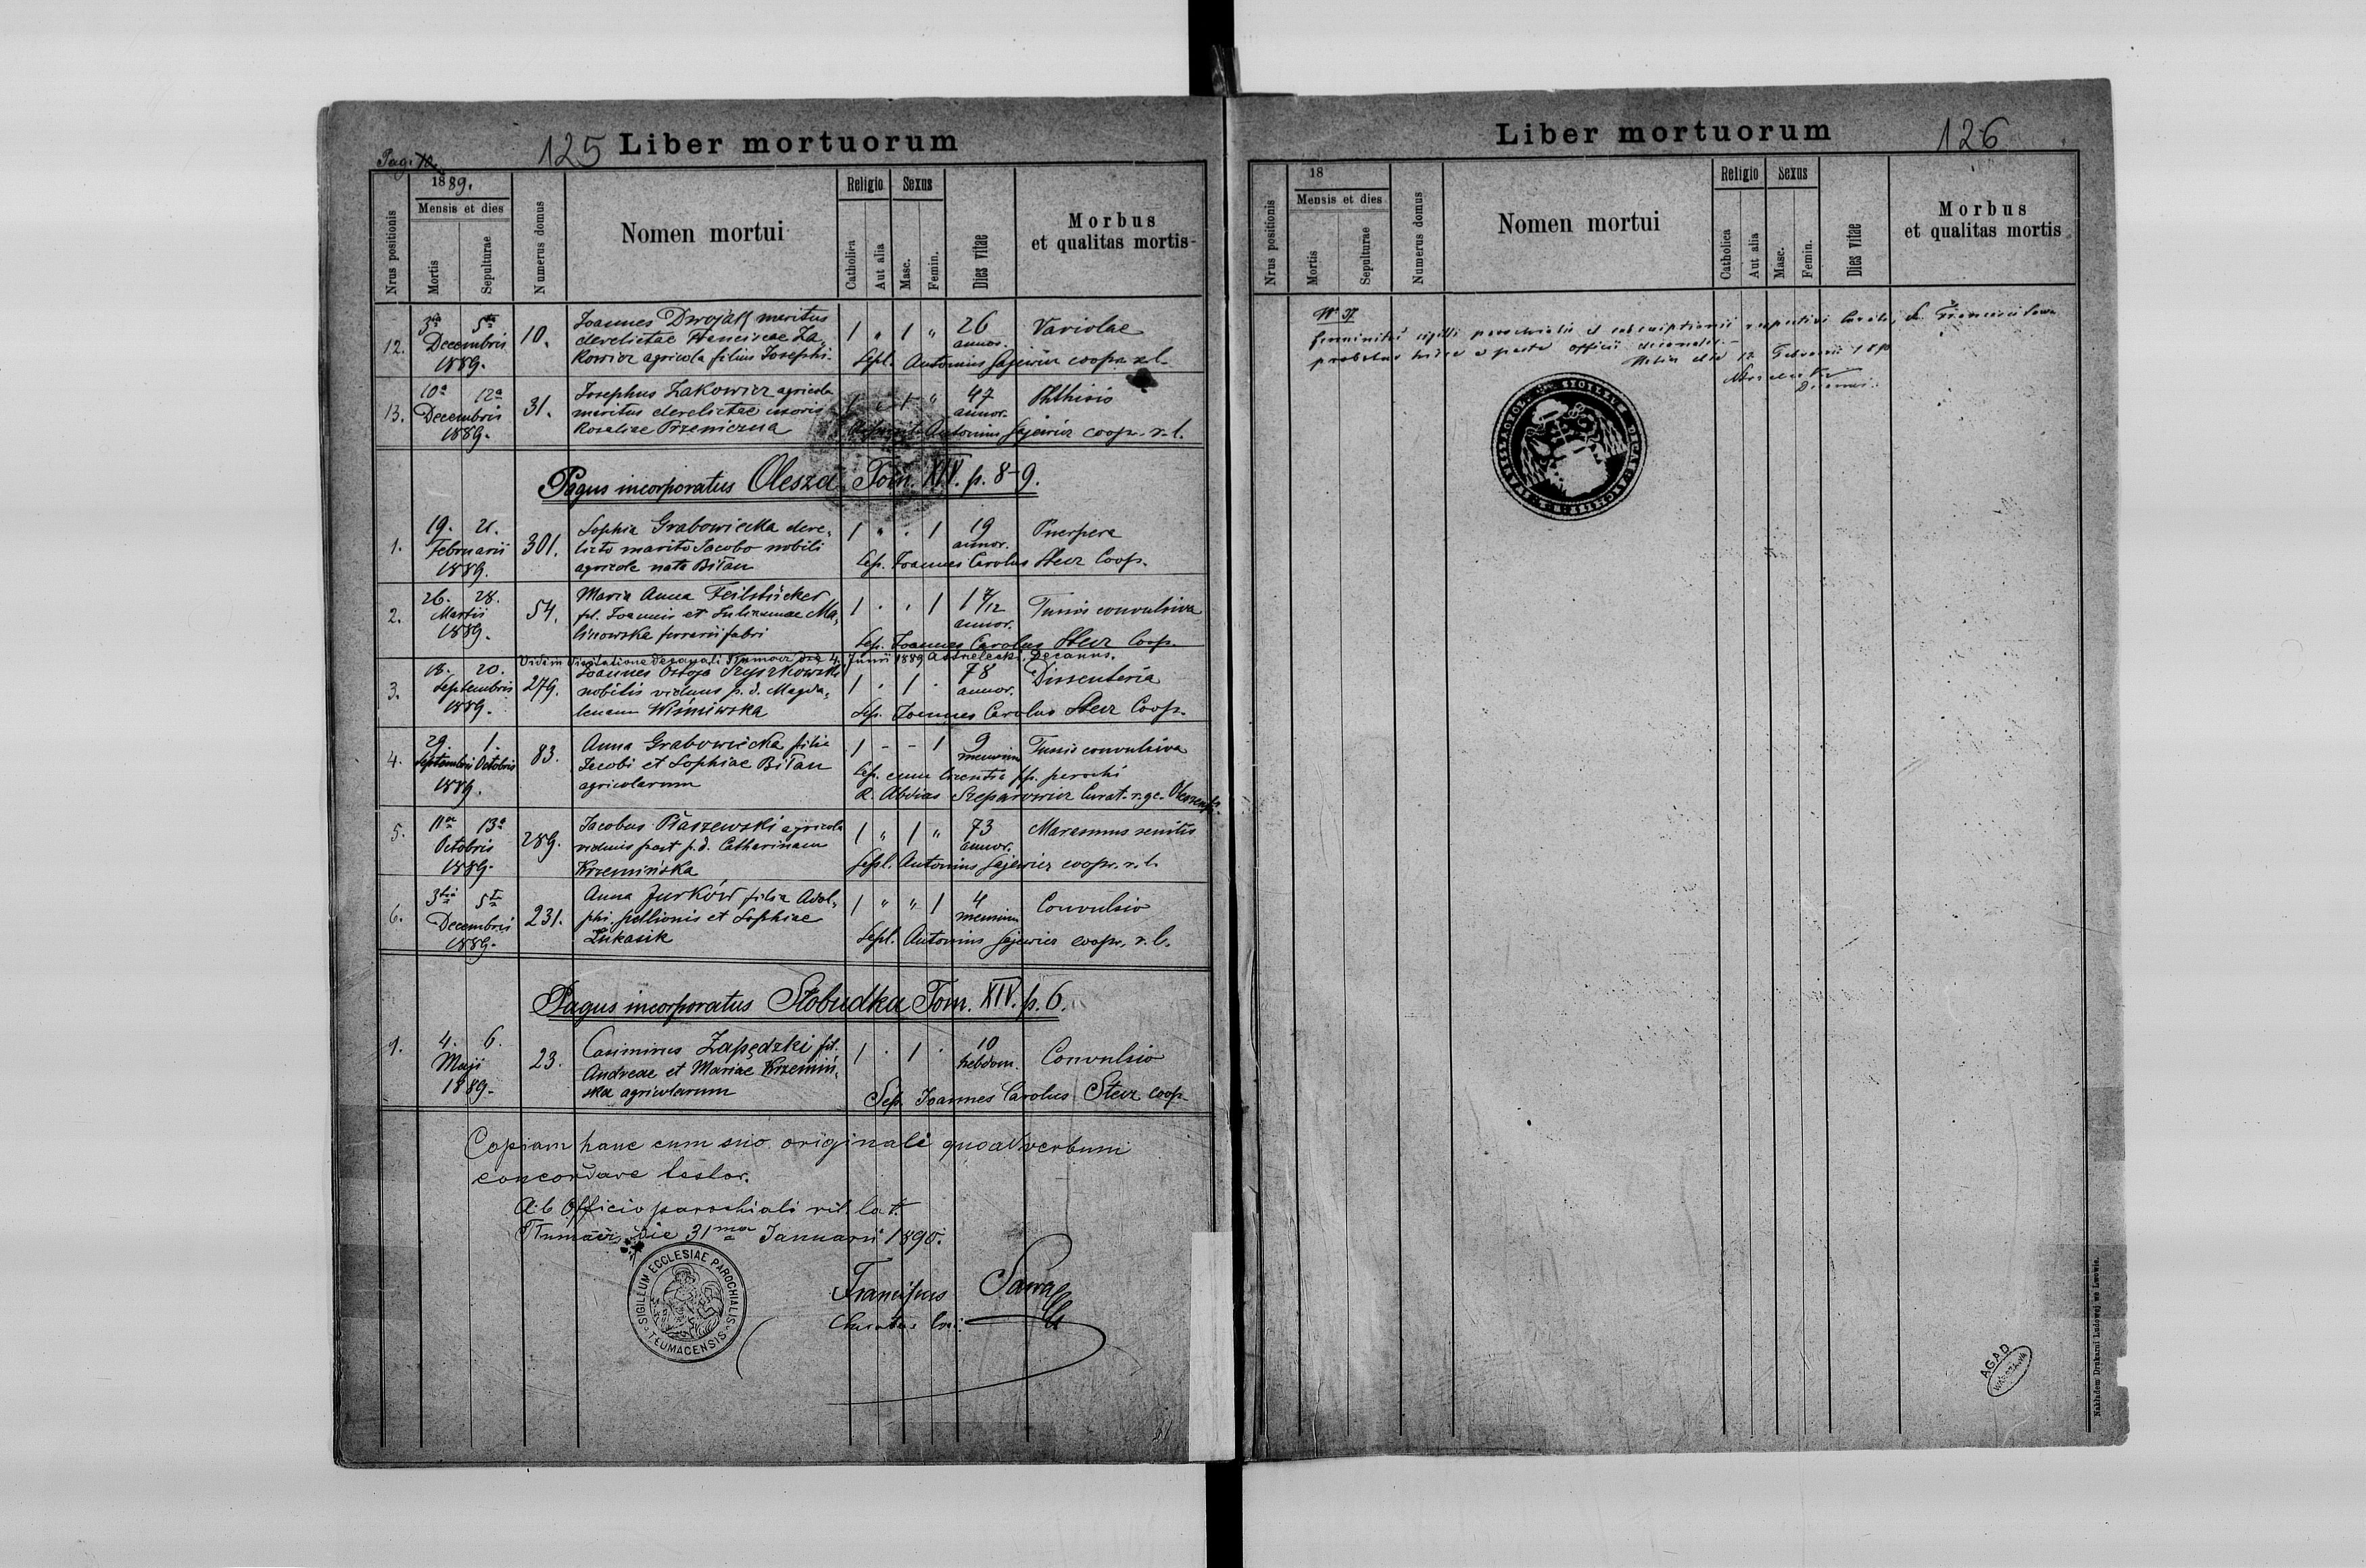 Pag. 12.
125 Liber mortuorum
Nrus positionis
1889.
Mensis et dies
Mortis
Sepulturae
Numerus domus
Nomen mortui
Religio
Catholica
Aut alia
Sexus
Masc.
Femin.
Dies vitae
Morbus
et qualitas mortis
12. 3tia 5ta Decembris 1889. 10.
Joannes Dwojak maritus
derelictae Franciscae Ża-
kowicz agricola filius Josephi
1 " 1 " 26 annor. Variolae
Sepl. Antonius Gajewicz coop. r. l.
13. 10a 12a Decembris 1889. 31.
Josephus Żakowicz agricola
maritus derelictae uxoris
Rosaliae Przeniczna
1 " 1 " 47 annor. Phthisis
Antonius Gajewicz coop. r. l.
Pagus incorporatus Olesza Tom. XIV. p. 8-9.
1. 19. 21. Februarii 1889. 301.
Sophia Grabowiecka dere-
licto marito Jacobo nobili
agricola nata Biłan
1 " . 1 19 annor. Puerpera
Sep. Joannes Carolus Steuz Coop.
2. 26. 28. Martii 1889. 54.
Maria Anna Feilstücker
fil. Joannis et Juliannae Ma-
linowska ferrarii fabri
1 . . 1 1 7/12 annor. Tussis convulsiva
Sep. Joannes Carolus Steuz Coop.
Vidi in Visitatione decanali Tłumacz die 4. Junii 1889 Decanus.
3. 18. 20. Septembris 1889. 279.
Joannes Ostoja Szyszkowski
nobilis viduus p. d. Magda-
lenam Wiśniewska
1 . 1 . 78 annor. Dissenteria
Sep. Joannes Carolus Steuz Coop.
4. 29. 1. Septembris Octobris 1889. 83.
Anna Grabowiecka filia
Jacobi et Sophiae Biłan
agricolarum
1 - - 1 9 mensium Tussis convulsiva
Sep. cum licentia pp. parochi
R. Abdias Szeparowicz Curat. r. gc.
5. 11a 13a Octobris 1889. 289.
Jacobus Piaszewski agricola
viduus post p. d. Catharinam
Krzemińska
1 " 1 " 73 annor. Marasmus senilis
Sepl. Antonius Gajewicz coop. r. l.
6. 3tia 5ta Decembris 1889. 231.
Anna Jurków filia Adol-
phi pellionis et Sophiae
Łukasik
1 " " 1 4 mensium Convulsio
Sepl. Antonius Gajewicz coop. r. l.
Pagus incorporatus Słobudka Tom. XIV. p. 6.
1. 4. 6. Maji 1889. 23.
Casimirus Zapędzki fil.
Andreae et Mariae Krzemiń-
ska agricolarum
1 . 1 . 10 hebdom. Convulsio
Sep. Joannes Carolus Steuz coop.
Copiam hanc cum suo originali quoad verbum
concordare testor.
Ab Officio parochiali rit. lat.
Tłumacz, die 31ma Januarii 1890.
SIGILLUM ECCLESIAE PAROCHIALIS
TŁUMACENSIS
Franciscus Sawa
Curatus
Liber mortuorum 126
Nrus positionis
18
Mensis et dies
Mortis
Sepulturae
Numerus domus
Nomen mortui
Religio
Catholica
Aut alia
Sexus
Masc.
Femin.
Dies vitae
Morbus
et qualitas mortis
No 37
sigilli parochialis et subscriptionis respectivi Curati, Francisci Sawa
officii decanalis
die 12 Februarii 1890
A.G.A.D
WARSZAWA
Nakładem Drukarni Ludowej we Lwowie.